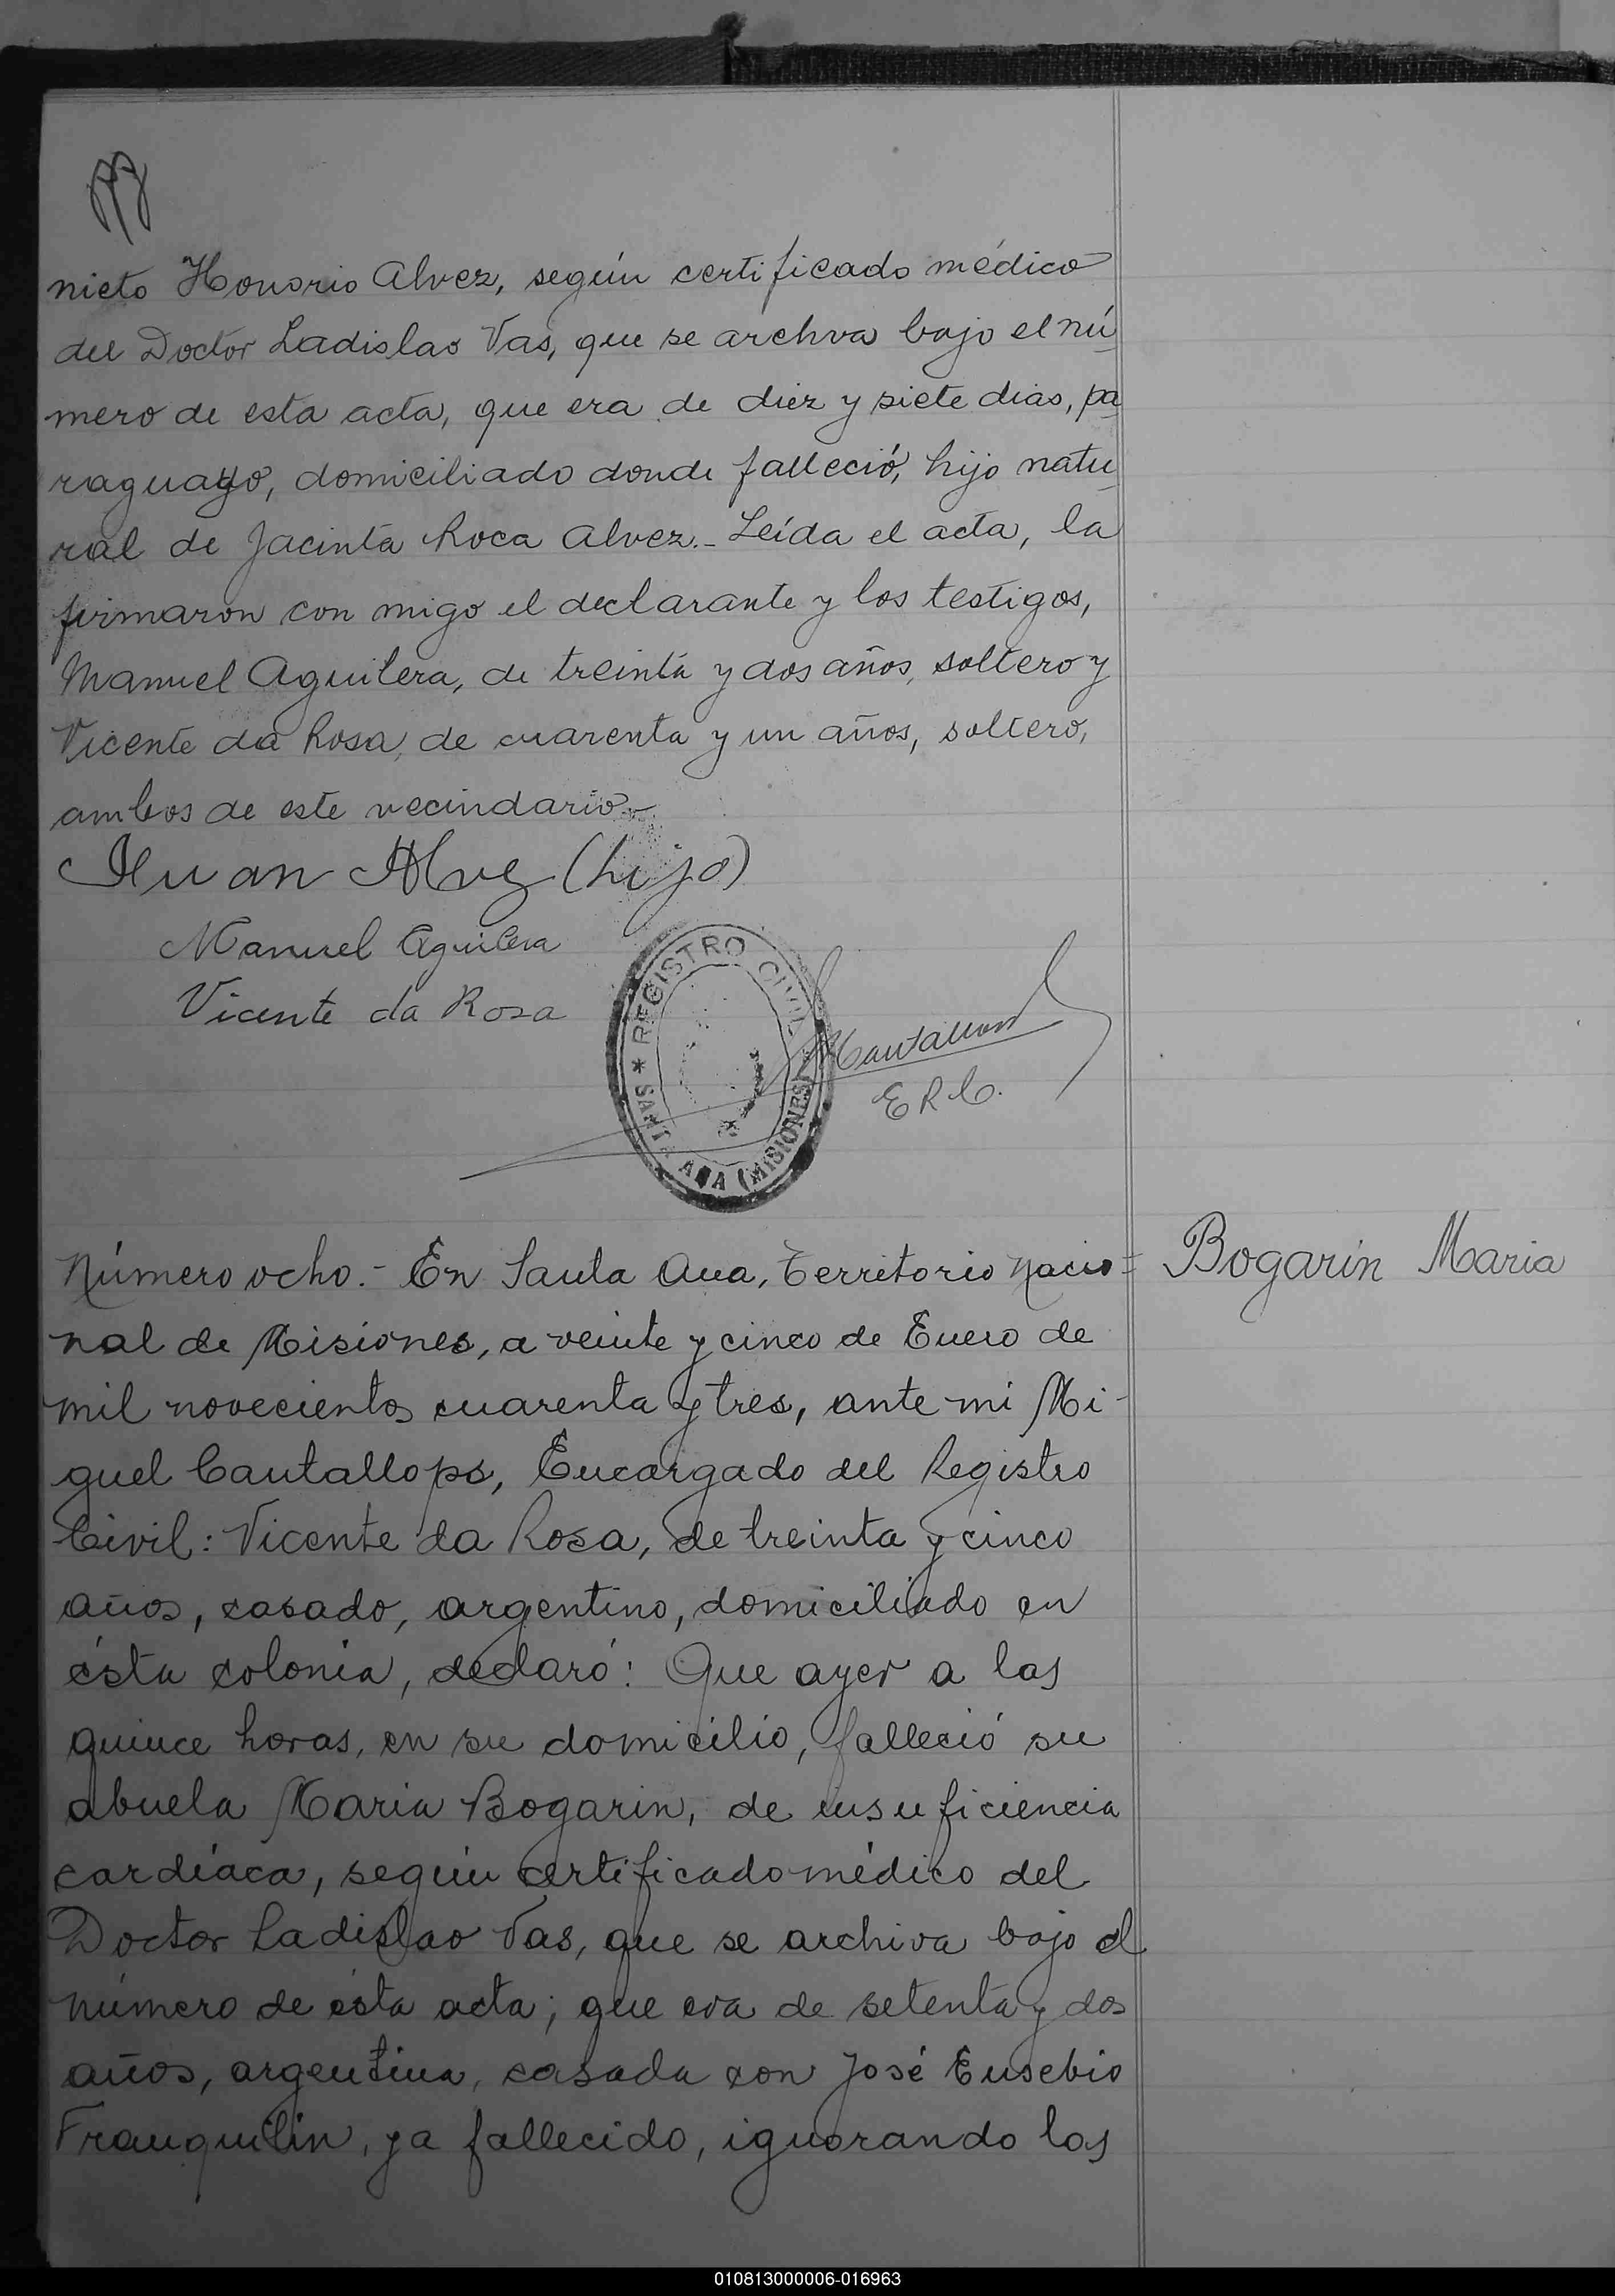 nieto Honorio Alvez, según certificado médico
del Doctor Ladislao Vas, que se archva bajo el nú
mero de esta acta, que era de diez y siete dias, pa
raguayo, domiciliado donde falleció, hijo natu
ral de Jacinta Roca Alvez.- Leída el acta, la
firmaron con migo el declarante y los testigos,
Manuel Aguilera, de treinta y dos años, soltero y
Vicente da Rosa, de cuarenta y un años, soltero,
ambos de este vecindario.-
Juan Alvez (hijo)
Manuel Aguilera
Vicente da Rosa
* REGISTRO CIVIL
SANTA ANA (MISIONES)
E R C.
Número ocho.- En Santa Ana, Territorio Nacio=
Bogarin Maria
nal de Misiones, a veinte y cinco de Enero de
mil novecientos cuarenta y tres, ante mi Mi-
guel Cantallops, Encargado del Registro
Civil: Vicente da Rosa, de treinta y cinco
años, casado, argentino, domiciliado en
ésta colonia, declaró: Que ayer a las
quince horas, en su domicilio, falleció su
abuela Maria Bogarin, de insuficiencia
cardíaca, según certificado médico del
Doctor Ladislao Vas, que se archiva bajo el
número de ésta acta; que era de setenta y dos
años, argentina, casada con José Eusebio
Franquilin, ya fallecido, ignorando los
010813000006-016963